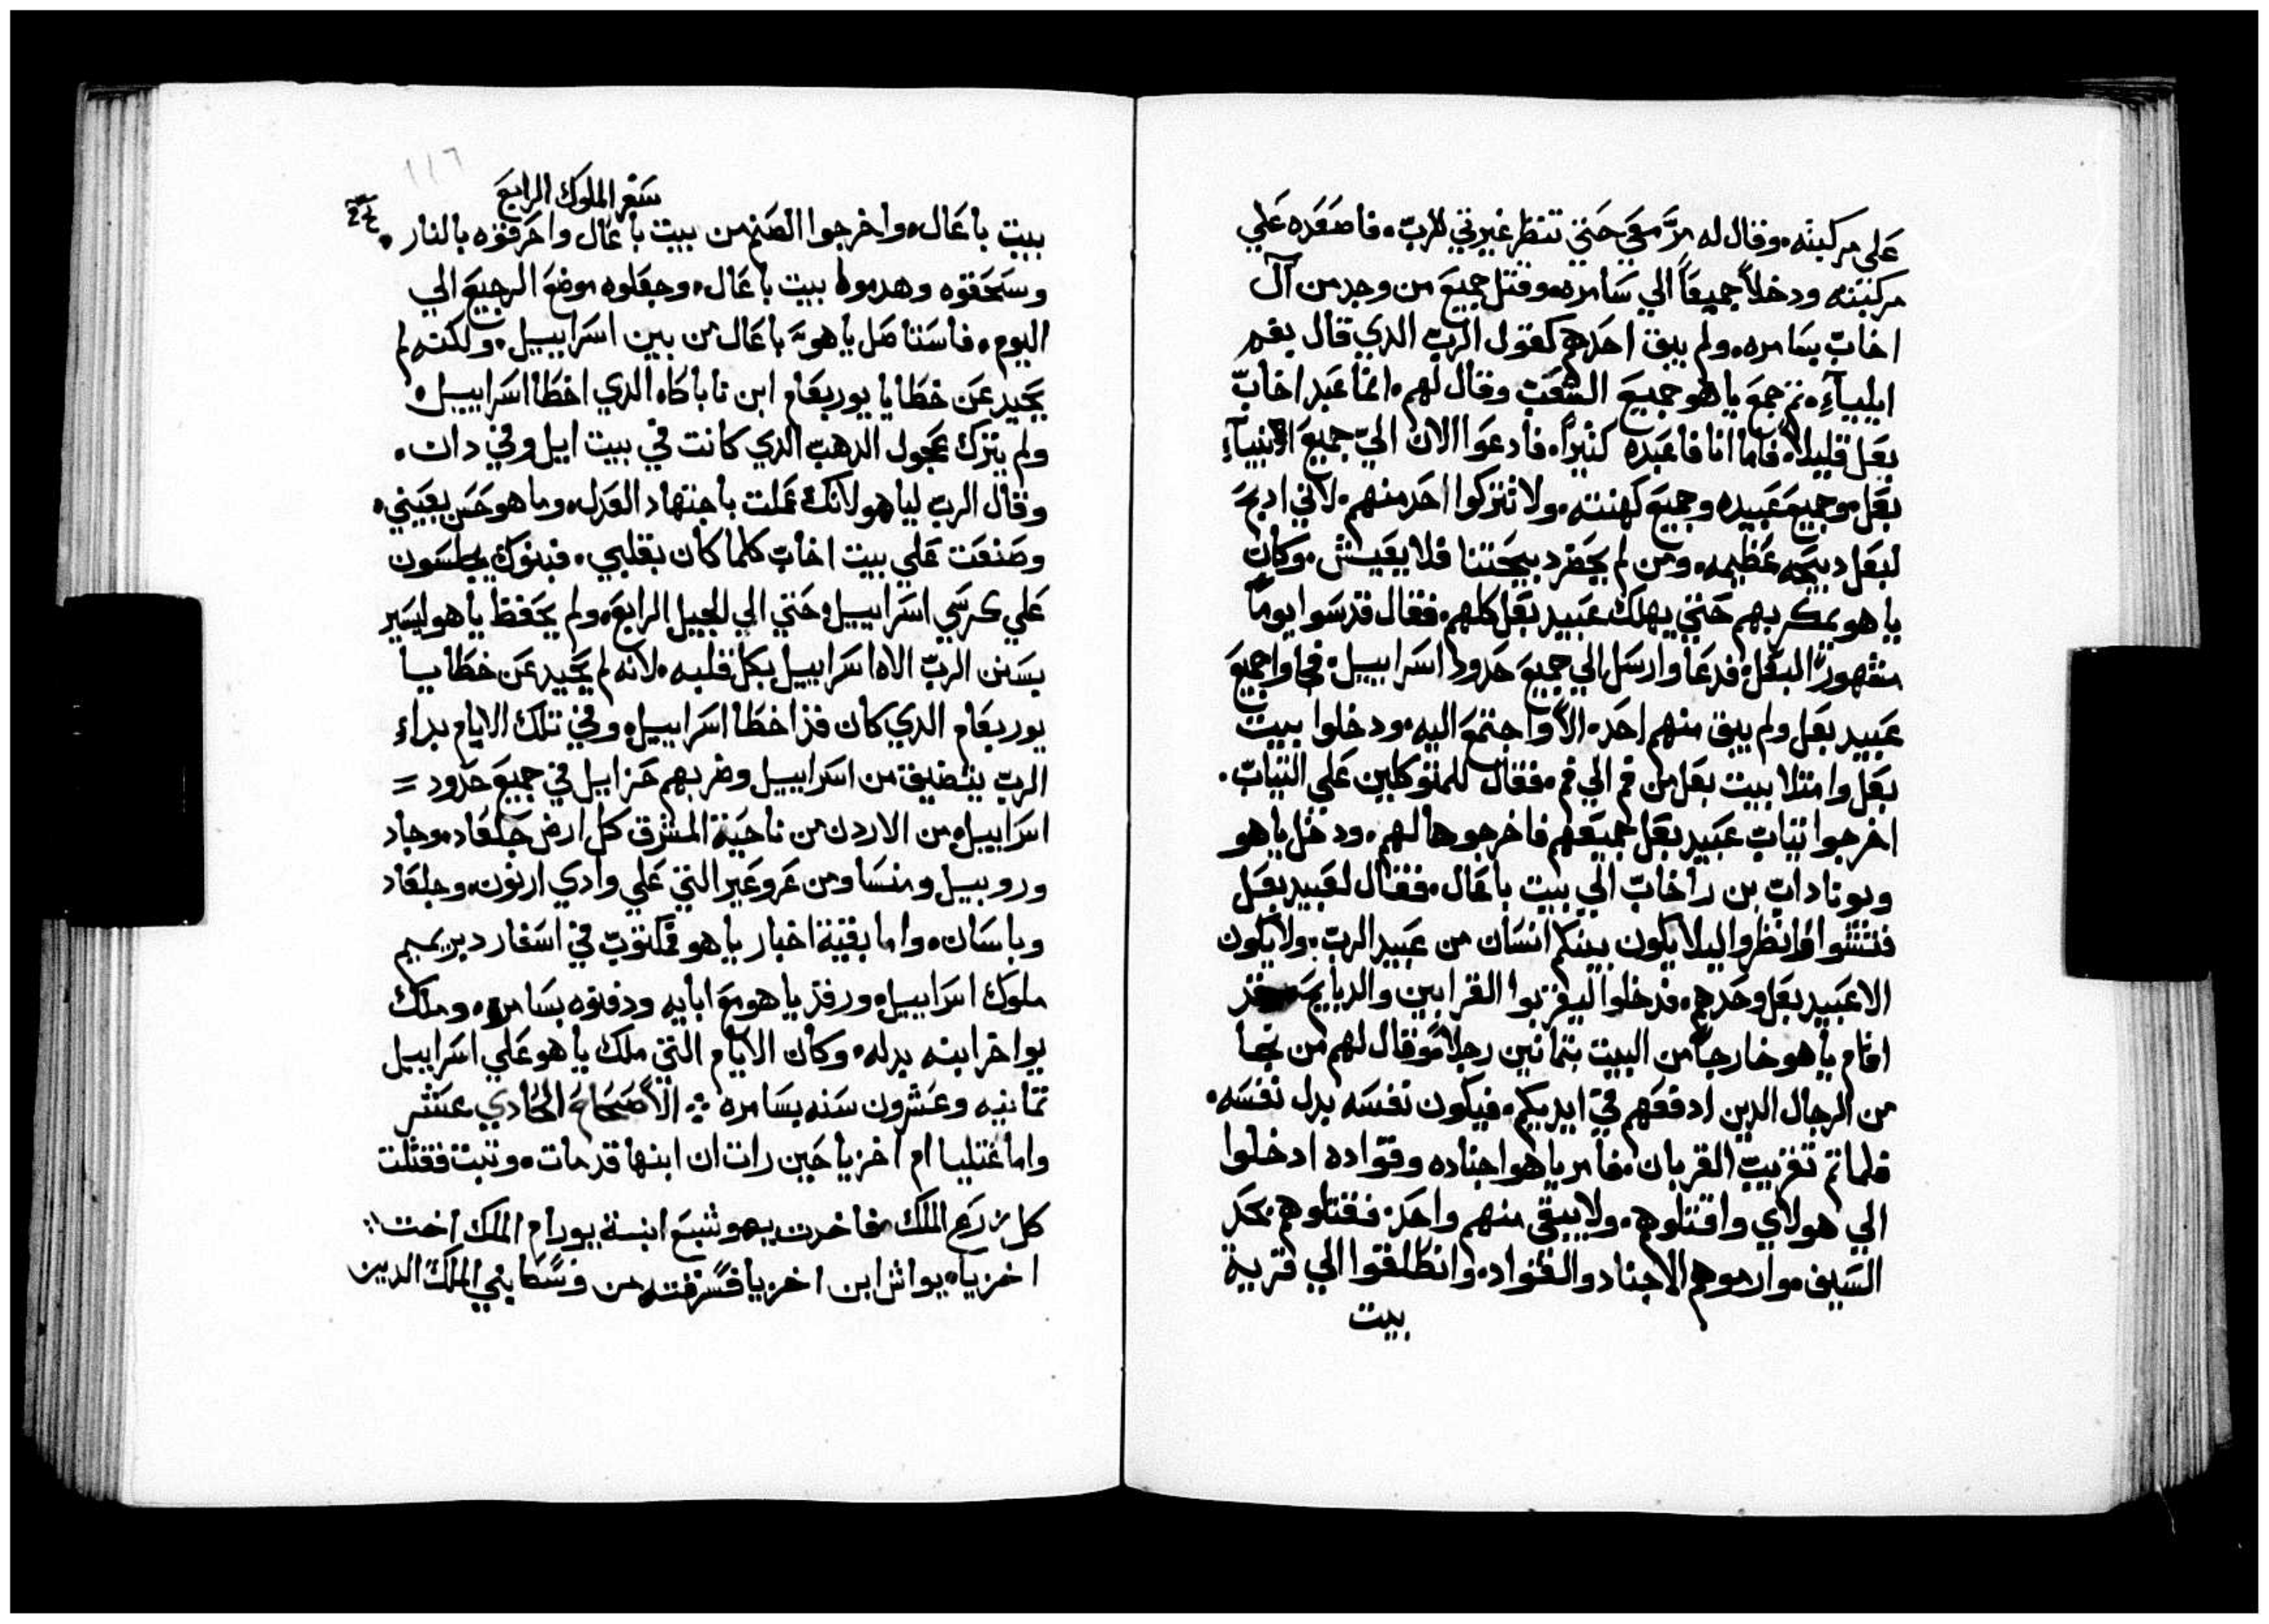 علي مركبته. وقال له مرّ معي حتي تنظر غيرتي للرب. فاصعده علي
مركبته ودخلاً جميعاً الي سامره. وقتل جميع من وجد من آل
اخاب بسامره. ولم يبق احدهم كقول الرب الدي قال بفم
ايلياء. تم جمع ياهو جميع الشعب وقال لهم. انما عبد اخاب
بعل قليلاً. فاما انا فاعبده كثيراً. فادعوا الان اليّ جميع الانبياء
بعل وجميع عبيده وجميع كهنته. ولا تتركوا احد منهم. لاني ادبح
لبعل دبيحه عظيمه. ومن لم يحضر دبيحتنا فلا يعيش. وكان
ياهو يمكر بهم حتي يهلك عبيد بعل كلهم. فقال قدسوا يوماً
مشهوراً لبعل. فدعا وارسل الي جميع حدود اسراييل. فجاوا جميع
عبيد بعل ولم يبق منهم احد. الاّ واجتمع اليه. ودخلوا بيت
بعل وامتلا بيت بعل من فم الي فم. فقال للمتوكلين علي التياب.
اخرجوا تياب عبيد بعل جميعهم فاخرجوها لهم. ودخل ياهو
ويوناداب بن راخاب الي بيت باعال. فقال لعبيد بعل
فتشوا وانظروا ليلا يكون بينكم انسان من عبيد الرب. ولا يكون
الا عبيد بعل وحدهم. فدخلوا ليقربوا القرابين والدبايح. وقد
اقام ياهو خارجاً من البيت بتمانين رجلاً. وقال لهم من نجا
من الرجال الدين ادفعهم في ايديكم. فيكون نفسه بدل نفسه.
فلما تم تقريب القربان. فامر ياهو اجناده وقواده ادخلوا
الي هولاي واقتلوهم. ولا يبقي منهم واحد. فقتلوهم بحد
السيف. وارموهم الاجناد والقواد. وانطلقوا الي قرية
بيت
١١٦
سفر الملوك الرابع
بيت باعال. واخرجوا الصنم من بيت باعال واحرقوه بالنار.
وسحقوه وهدموا بيت باعال. وجعلوه موضع الرجيع الي
اليوم. فاستاصل ياهو باعال من بين اسراييل. ولكنه لم
يحيد عن خطايا يوربعام ابن ناباطاه الدي اخطا اسراييل.
ولم يترك عجول الدهب الدي كانت في بيت ايل وفي دان.
وقال الرب لياهو لانك عملت باجتهاد العدل. وما هو حسن بعيني.
وصنعت علي بيت اخاب كلما كان بقلبي. فبنوك يجلسون
علي كرسي اسراييل حتي الي الجيل الرابع. ولم يحفظ ياهو ليسير
بسنن الرب الاه اسراييل بكل قلبه. لانه لم يحيد عن خطايا
يوربعام الدي كان قد اخطا اسراييل. وفي تلك الايام بداء
الرب يتضيق من اسراييل وضربهم حزاييل في جميع حدود =
اسراييل من الاردن من ناحية المشرق كل ارض جلعاد. وجاد
وروبيل ومنسا ومن عروعير التي علي وادي ارنون. وجلعاد
وباسان. واما بقية اخبار ياهو فمكتوب في اسفار دبريميم
ملوك اسراييل. ورقد ياهو مع ابايه ودفنوه بسامره. وملك
يواخر ابنه بدله. وكان الايام التي ملك ياهو علي اسراييل
تمانيه وعشرون سنه بسامره ∴ الاصحاح الحادي عشر
واما غتليا ام اخزيا حين رات ان ابنها قد مات. وتبت فقتلت
كل زرع الملك. فاخدت يهوشبع ابنة يورام الملك اخت
اخزياه يواش ابن اخزيا فسرقته من وسط بني الملك الدين